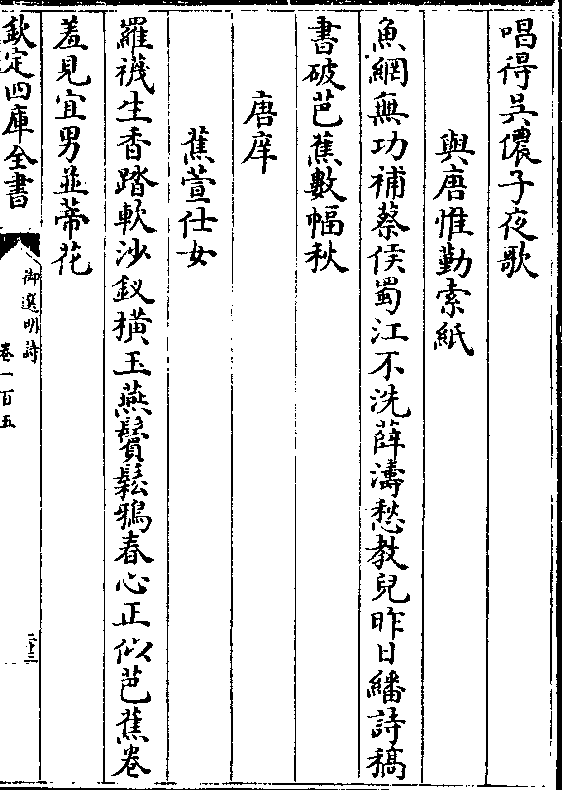 唱得吳儂子夜歌
與唐惟勤索紙
魚網無功補蔡侯蜀江不洗薛濤愁教兒昨日繙詩稿
書破芭蕉數幅秋
唐庠
蕉萱仕女
羅襪生香踏軟沙釵横玉燕鬢鬆鴉春心正似芭蕉卷
羞見宜男並蒂花
欽定四庫全書
御選明詩
卷一百五
二十三